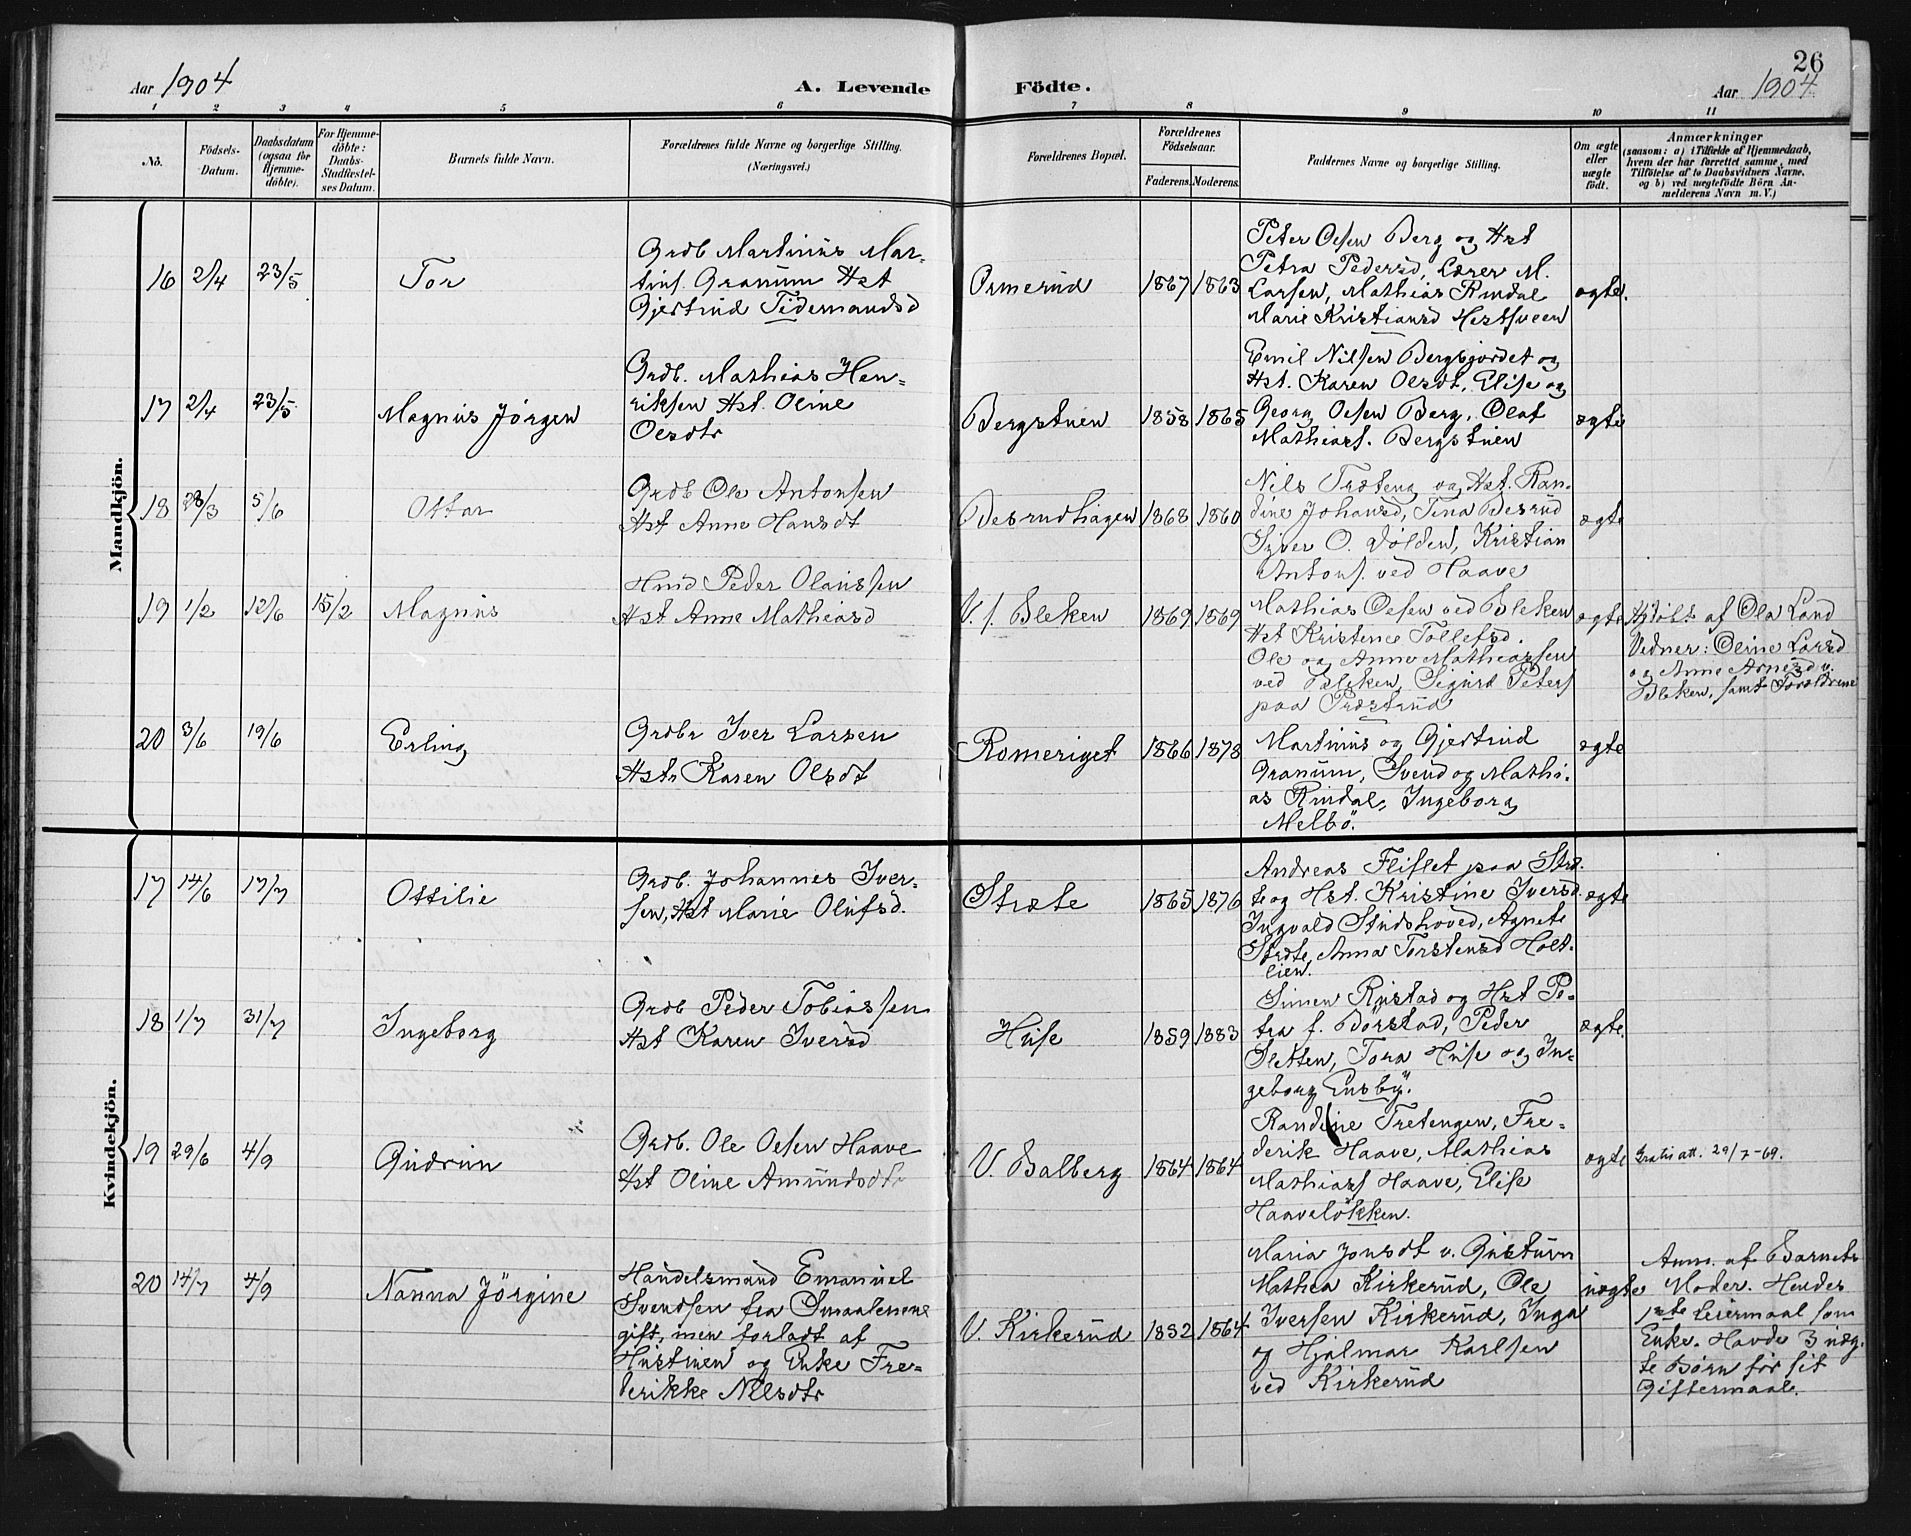 26
Aar 1904
A. Levende
Födte.
Aar 1904
1 2 3 4 5 6 7 8 9 10 11
No.
Födsels-
Datum.
Daabsdatum
(ogsaa for
Hjemme-
döbte).
For Hjemme-
döbte:
Daabs-
Stadfæstel-
ses Datum.
Barnets fulde Navn.
Forældrenes fulde Navne og borgerlige Stilling.
(Næringsvei.)
Forældrenes Bopæl.
Forældrenes
Födselsaar.
Faderens. Moderens.
Faddernes Navne og borgerlige Stilling.
Om ægte
eller
uægte
födt.
Anmærkninger
(saasom: a) i Tilfælde af Hjemmedaab,
hvem der har forrettet samme, med
Tilföielse af to Daabsvidners Navne,
og b) ved uægtefödte Börn An-
melderens Navn m. V.)
Mandkjön.
16 2/4 23/5
Tor
Grdb Martinus Mar-
tins. Granum Hst
Gjertrud Tidemandsd
Ormerud
1867 1863
Peter Olsen Berg og Hst
Petra Pedersd, Lærer M.
Larsen, Mathias Rindal
Marie Kristiansd Hestsveen
ægte.
17 2/4 23/5
Magnus Jörgen
Grdb. Mathias Hen-
riksen Hst. Oline
Olsdtr
Bergstuen
1858 1865
Emil Nilsen Bergsjordet og
Hst. Karen Olsdt, Elise og
Georg Olsen Berg, Olaf
Mathias. Bergstuen
ægte
18 28/3 5/6
Ottar
Grdb Ole Antonsen
Hst Anne Hansdt
Besrudhagen
1868 1860
Nils Træteng og Hst. Ran-
dine Johansd, Tina Besrud
Syver O. Volden, Kristian
Antons. ved Haave
ægte
19 1/2 12/6 15/2
Magnus
Hmd Peder Olaussen
Hst Anne Mathiasd
V. f. Bleken
1869 1869
Mathias Olsen ved Bleken
Hst Kristense Tollefsd.
Ole og Anne Mathiassen
ved Bleken, Sigurd Peters
paa Præstrud
ægte
Hjdöbt af Ola Land
Vidner: Oline Larsd
og Anne Arnesd v.
Bleken, samt Forældrene
20 3/6 19/6
Erling
Grdbr Iver Larsen
Hstr Karen Olsdt
Romeriget
1866 1878
Martinus og Gjertrud
Granum, Svend og Mathi-
as Rindal, Ingeborg
Melbö.
ægte
Kvindekjön.
17 14/6 17/7
Ottilie
Grdb. Johannes Iver-
sen, Hst Marie Olufsd.
Stræte
1865 1876
Andreas Fliflet paa Stræ-
te og Hst. Kristine Iversd.
Ingvald Studshoved, Agnete
Stræte, Anna Torstensd Holt-
lien.
ægte
18 1/7 31/7
Ingeborg
Grdb Peder Tobiassen
Hst Karen Iversd
Huse
1859 1883
Simen Rustad og Hst Pe-
tra f. Börstad, Peder
Sletten, Tora Huse og In-
geborg Ensby.
ægte.
19 29/6 4/9
Gudrun
Grdb. Ole Olsen Haave
Hst Oline Amundsdtr
V. Balberg
1864 1864
Randine Tretengen, Fre-
derik Haave, Mathias
Mathias Haave, Elise
Haavelökken.
ægte
Gratis att. 29/7-69.
20 14/7 4/9
Nanna Jörgine
Handelsmand Emanuel
Svendsen fra Smaalenene
gift, men forladt af
Hustruen og Enke Fre-
derikke Nilsdtr
V. Kirkerud
1852 1864
Maria Jonsdt v. Gustum
Mathea Kirkerud, Ole
Iversen Kirkerud, Inga
og Hjalmar Karlsen
ved Kirkerud
uægte
Anm. af Barnets
Moder. Hendes
1ste Leiermaal som
Enke. Havde 3 uæg-
te Börn för sit
Giftermaal.